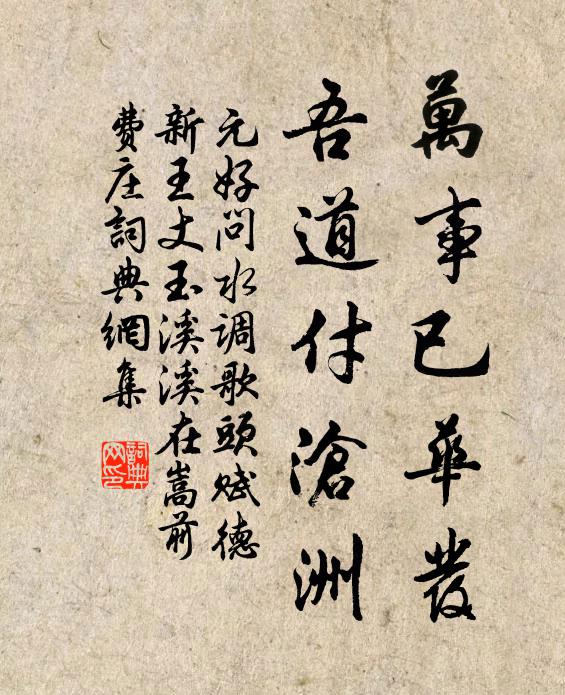 萬事已華發
吾道付滄洲
元好問水调歌頭赋德
新王丈玉溪溪在嵩前
費庄詞典網集
詞典网印